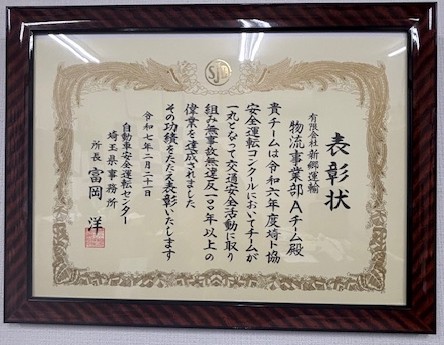 SJD
表彰状
有限会社新郷運輸
物流事業部Aチーム殿
貴チームは令和六年度埼ト協
安全運転コンクールにおいてチームが
一丸となって交通安全活動に取り
組み無事故無違反一〇〇年以上の
偉業を達成されました
その功績をたたえ表彰いたします
令和七年二月二十一日
自動車安全運転センター
埼玉県事務所
所長 富岡 洋